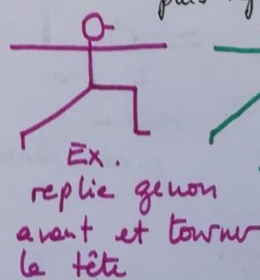 puis
Ex.
replie genou
avant et tourner
la tête